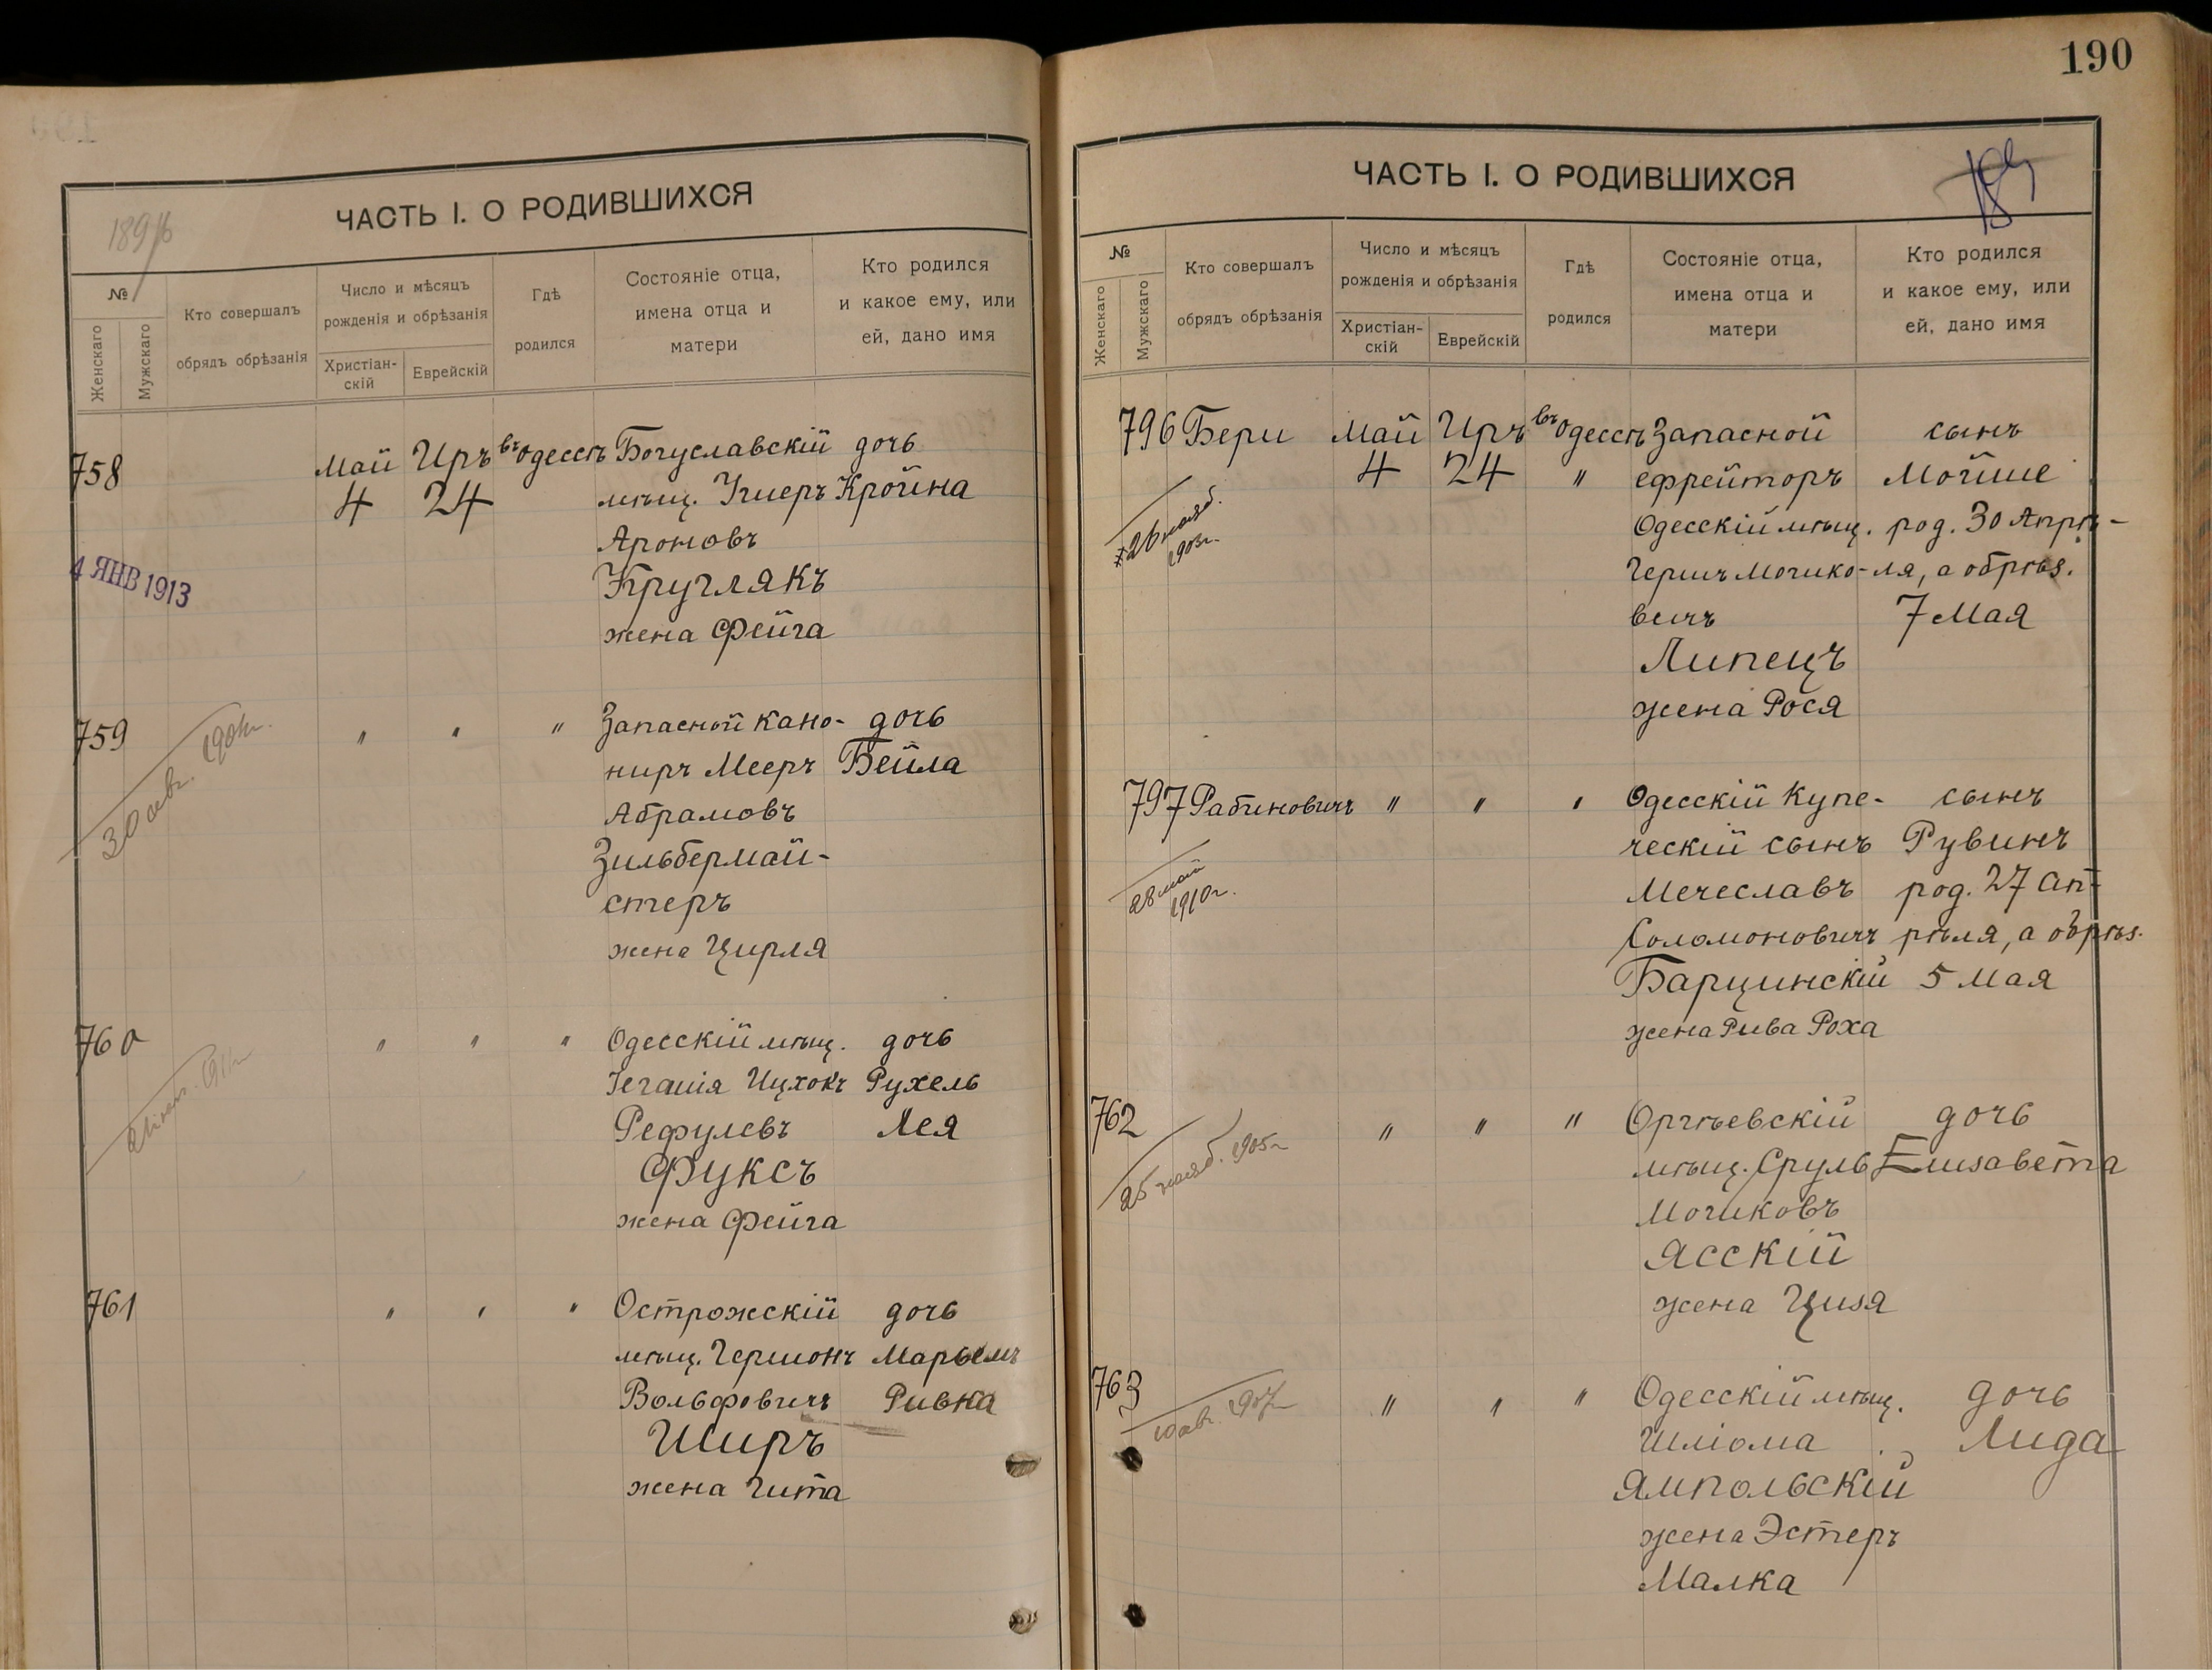 190
ЧАСТЬ I. О РОДИВШИХСЯ
№
Женскаго
Мужскаго
Кто совершалъ
обрядъ обрѣзанія
Число и мѣсяцъ
рожденія и обрѣзанія
Христіан-
скій
Еврейскій
Гдѣ
родился
Состояніе отца,
имена отца и
матери
Кто родился
и какое ему, или
ей, дано имя
758 Май Иръ въ Одессѣ Богуславскій дочь
4 24 мѣщ. Ушеръ Кройна
Ароновъ
4 ЯНВ 1913
Кругляkъ
жена Фейга
759 " " " Запасной кано- дочь
30 авг. 1904г.
ниръ Мееръ Бейла
Абрамовъ
Зильбермай-
стеръ
жена Цирля
760 " " " Одесскій мѣщ. дочь
Ицхокъ Рухель
Рефулевъ Лея
Фуксъ
жена Фейга
761 " " " Острожскій дочь
мѣщ. Гершонъ Марьемъ
Вольфовичъ Ривка
Ширъ
жена Гита
ЧАСТЬ I. О РОДИВШИХСЯ
189
№
Женскаго
Мужскаго
Кто совершалъ
обрядъ обрѣзанія
Число и мѣсяцъ
рожденія и обрѣзанія
Христіан-
скій
Еврейскій
Гдѣ
родился
Состояніе отца,
имена отца и
матери
Кто родился
и какое ему, или
ей, дано имя
796 Бери Май Иръ въ Одессѣ Запасной сынъ
4 24 " ефрейторъ Мойше
26 нояб.
1903г.
Одесскій мѣщ. род. 30 Апрѣ-
Гершъ Мошко- ля, а обрѣз.
вичъ 7 Мая
Липецъ
жена Рося
797 Рабиновичъ " " " Одесскій Купе- сынъ
ческій сынъ Рувинъ
28 май
1910г.
Мечеславъ род. 27 Ап-
Соломоновичъ рѣля, а обрѣз.
Барцинскій 5 Мая
жена Рива Роха
762 " " " Оргѣевскій дочь
25 нояб. 1905г.
мѣщ. Сруль Елизавета
Мошковъ
Ясскій
жена Циза
763 " " " Одесскій мѣщ. дочь
10 авг. 1907г.
Шліома Лида
Ямпольскій
жена Эстеръ
Малка